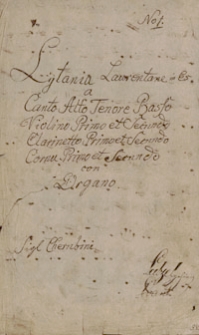 No 1.
Lytania Lauretanae in Es.
a
Canto Alto Tenore Basso
Violino Primo et Secundo
Clarinetto Primo et Secundo
Cornu Primo et Secundo
con
Organo.
Sigl Cherubini